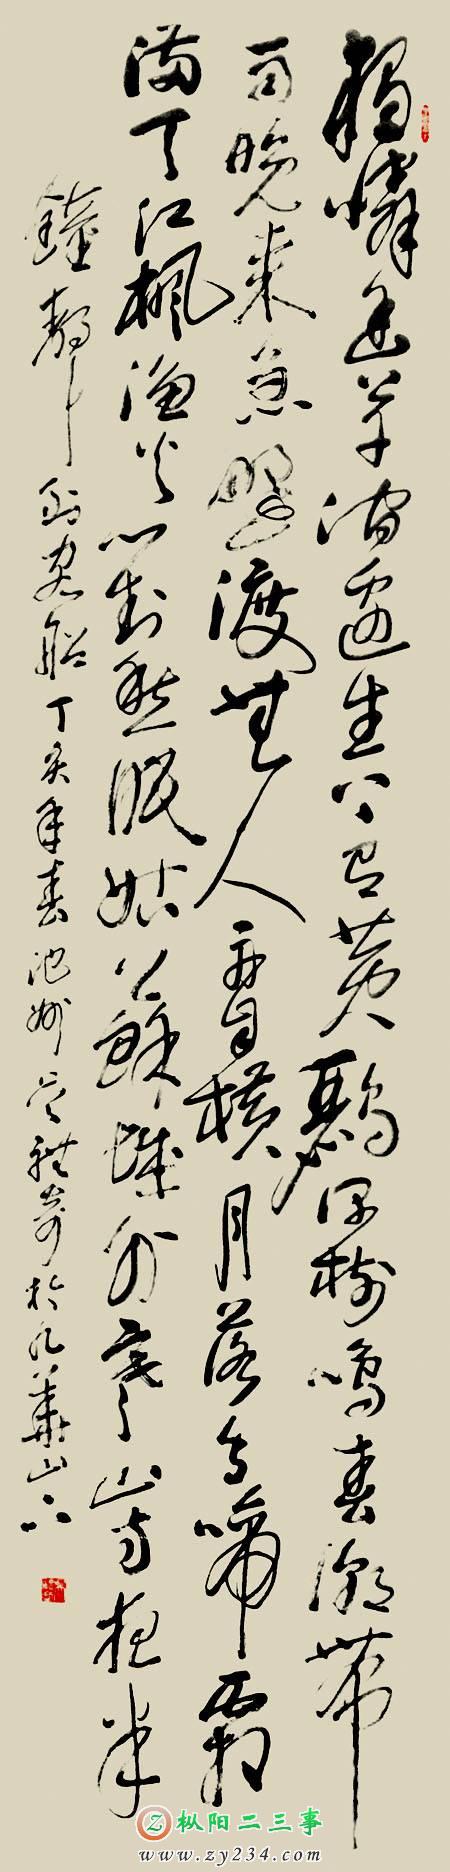 獨憐幽草澗邊生上有黃鸝深樹鳴春潮帶
雨晚來急野渡無人舟自橫月落烏啼霜
滿天江楓漁火對愁眠姑蘇城外寒山寺夜半
鐘聲到客船丁亥年春池州吳奇於九華山下
枞阳二三事
www.zy234.com